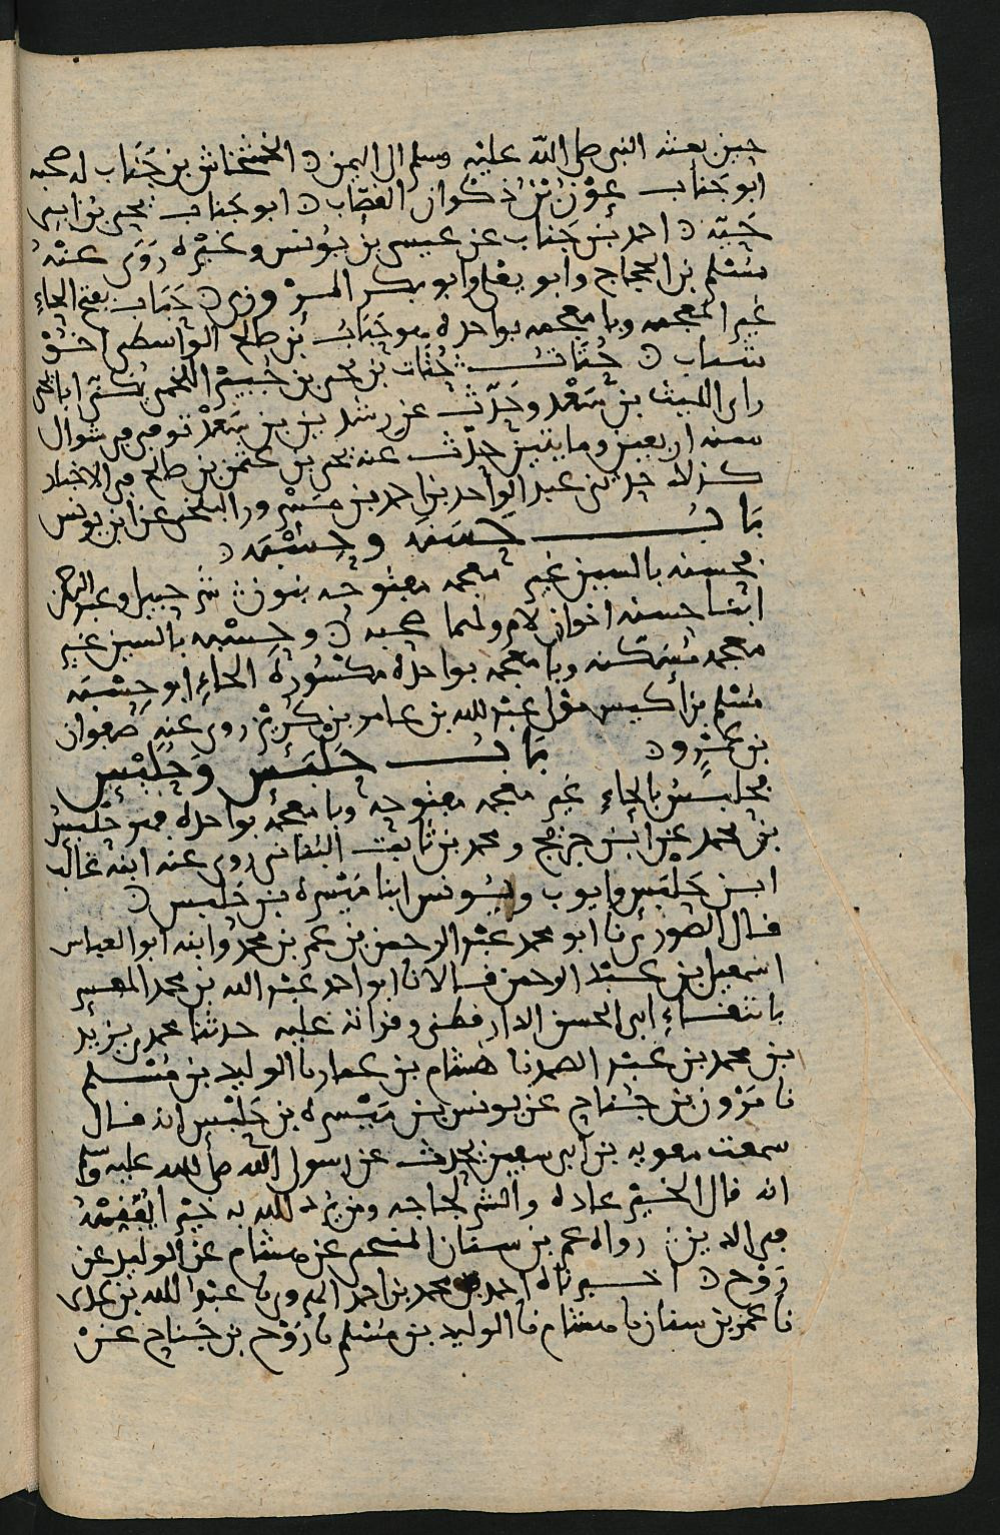 حين بعثه النبي صلى الله عليه وسلم الى اليمن ن الخشخاش بن جَنَاب له صحبه
ابو جَناب عَوْن بْنُ ذَكْوان القصّاب ن ابو جَناب يحيى بن ابي
حَيّه ن احمد بن جَناب عن عيسى بن يونس وغيره رَوَى عنْهُ
مُسْلم بن الحجاج وابو يعلى وابو بكر المَرْوزي ن حَبَاب بفتح الحاء
غير المعجمه وبا معجمه بواحده هو حَبَابُ بْن صالح الواسطي
شباب ن حُتَاتُ بن يحيى بن جُبَيْر اللخمي يكنى ابا
راى الليث بن سَعْد وحَدّث عن رشدين بن سَعْد توفي في شوال
سنه اربعين ومايتين حدّث عنه يحيى بن عثمن بن صالح في الاخبار
كذلك حدثني عبد الواحد بن احمد بن مَسْرور البلخي عن ابن يونس
بَابُ حَسَنَه وحِسْبَه ن
فحسنه بالسين غير معجمه مفتوحه بنون شُرَحبيل وعبد الرحمن
ابنا حسنه اخوان لام ولهما صحبه ن وحِسْبه بالسين غير
معجمه مُسَكنه وبا معجمه بواحده مكسُورة الحاءِ ابو حِسْبَه
مُسْلم بن اكيس مولى عبْد الله بن عامر بن كُرَيْز روى عنه صفوان
بن عَمْرٍو ن بَابُ حَلْبَس وَجُلَيْس
فحلبَس بالحاءِ غير معجمه مفتوحه وبا معجمه بواحده فهو حَلْبَسُ
بنُ محمد عن ابْن جريج ومحمد بن ثابت البُنَاني روى عنه ابنه غالب
ابن حَلْبَس وايوب ويُونس ابنا مَيْسره بن حَلبس ن
قال الصُوري نا ابو محمد عبْد الرحمن بن عمر بن محمد وابنه ابو العباس
اسمعيل بن عبْد الرحمن قالا نا ابو احمد عبْد الله بن محمد المفسر
بانتقاءِ ابي الحسن الدارقطني وقراته عليه حدثنا محمد بن يزيد
بن محمد بن عبْد الصمد نا هشام بن عمار نا الوليد بن مُسْلم
نا مَرْون بن جَناح عن يونس بن مَيْسره بن حَلْبس انه قال
سمعت معويه بن ابي سفين يحدث عن رسول الله صلى الله عليه وسلم
انه قال الخيْر عاده والشر لجاجه ومن يُرد الله به خيْراً يُفَقّهْهُ
في الدين ن رواه عمر بن سنان المنبجي عن هشام عن الوليد عن
رَوْح ن اخبرناه احمد بن محمد بن احمد الهروي نا عبْد الله بن عدى
نا عمر بن سنان نا هشام نا الوليد بن مُسْلم نا رَوْح بن جَناح عَنْ